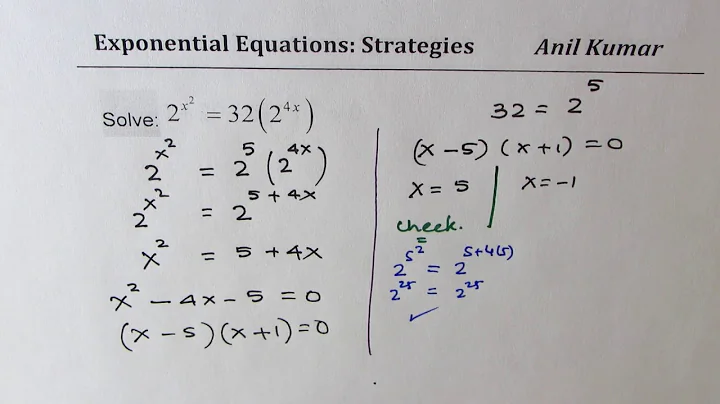 Exponential Equations: Strategies Anil Kumar
Solve: 2^{x^2} = 32(2^{4x})
2^{x^2} = 2^5 (2^{4x})
2^{x^2} = 2^{5 + 4x}
x^2 = 5 + 4x
x^2 - 4x - 5 = 0
(x - 5)(x + 1) = 0
32 = 2^5
(x - 5)(x + 1) = 0
x = 5 | x = -1
check.
2^{5^2} = 2^{5+4(5)}
2^{25} = 2^{25}
✓